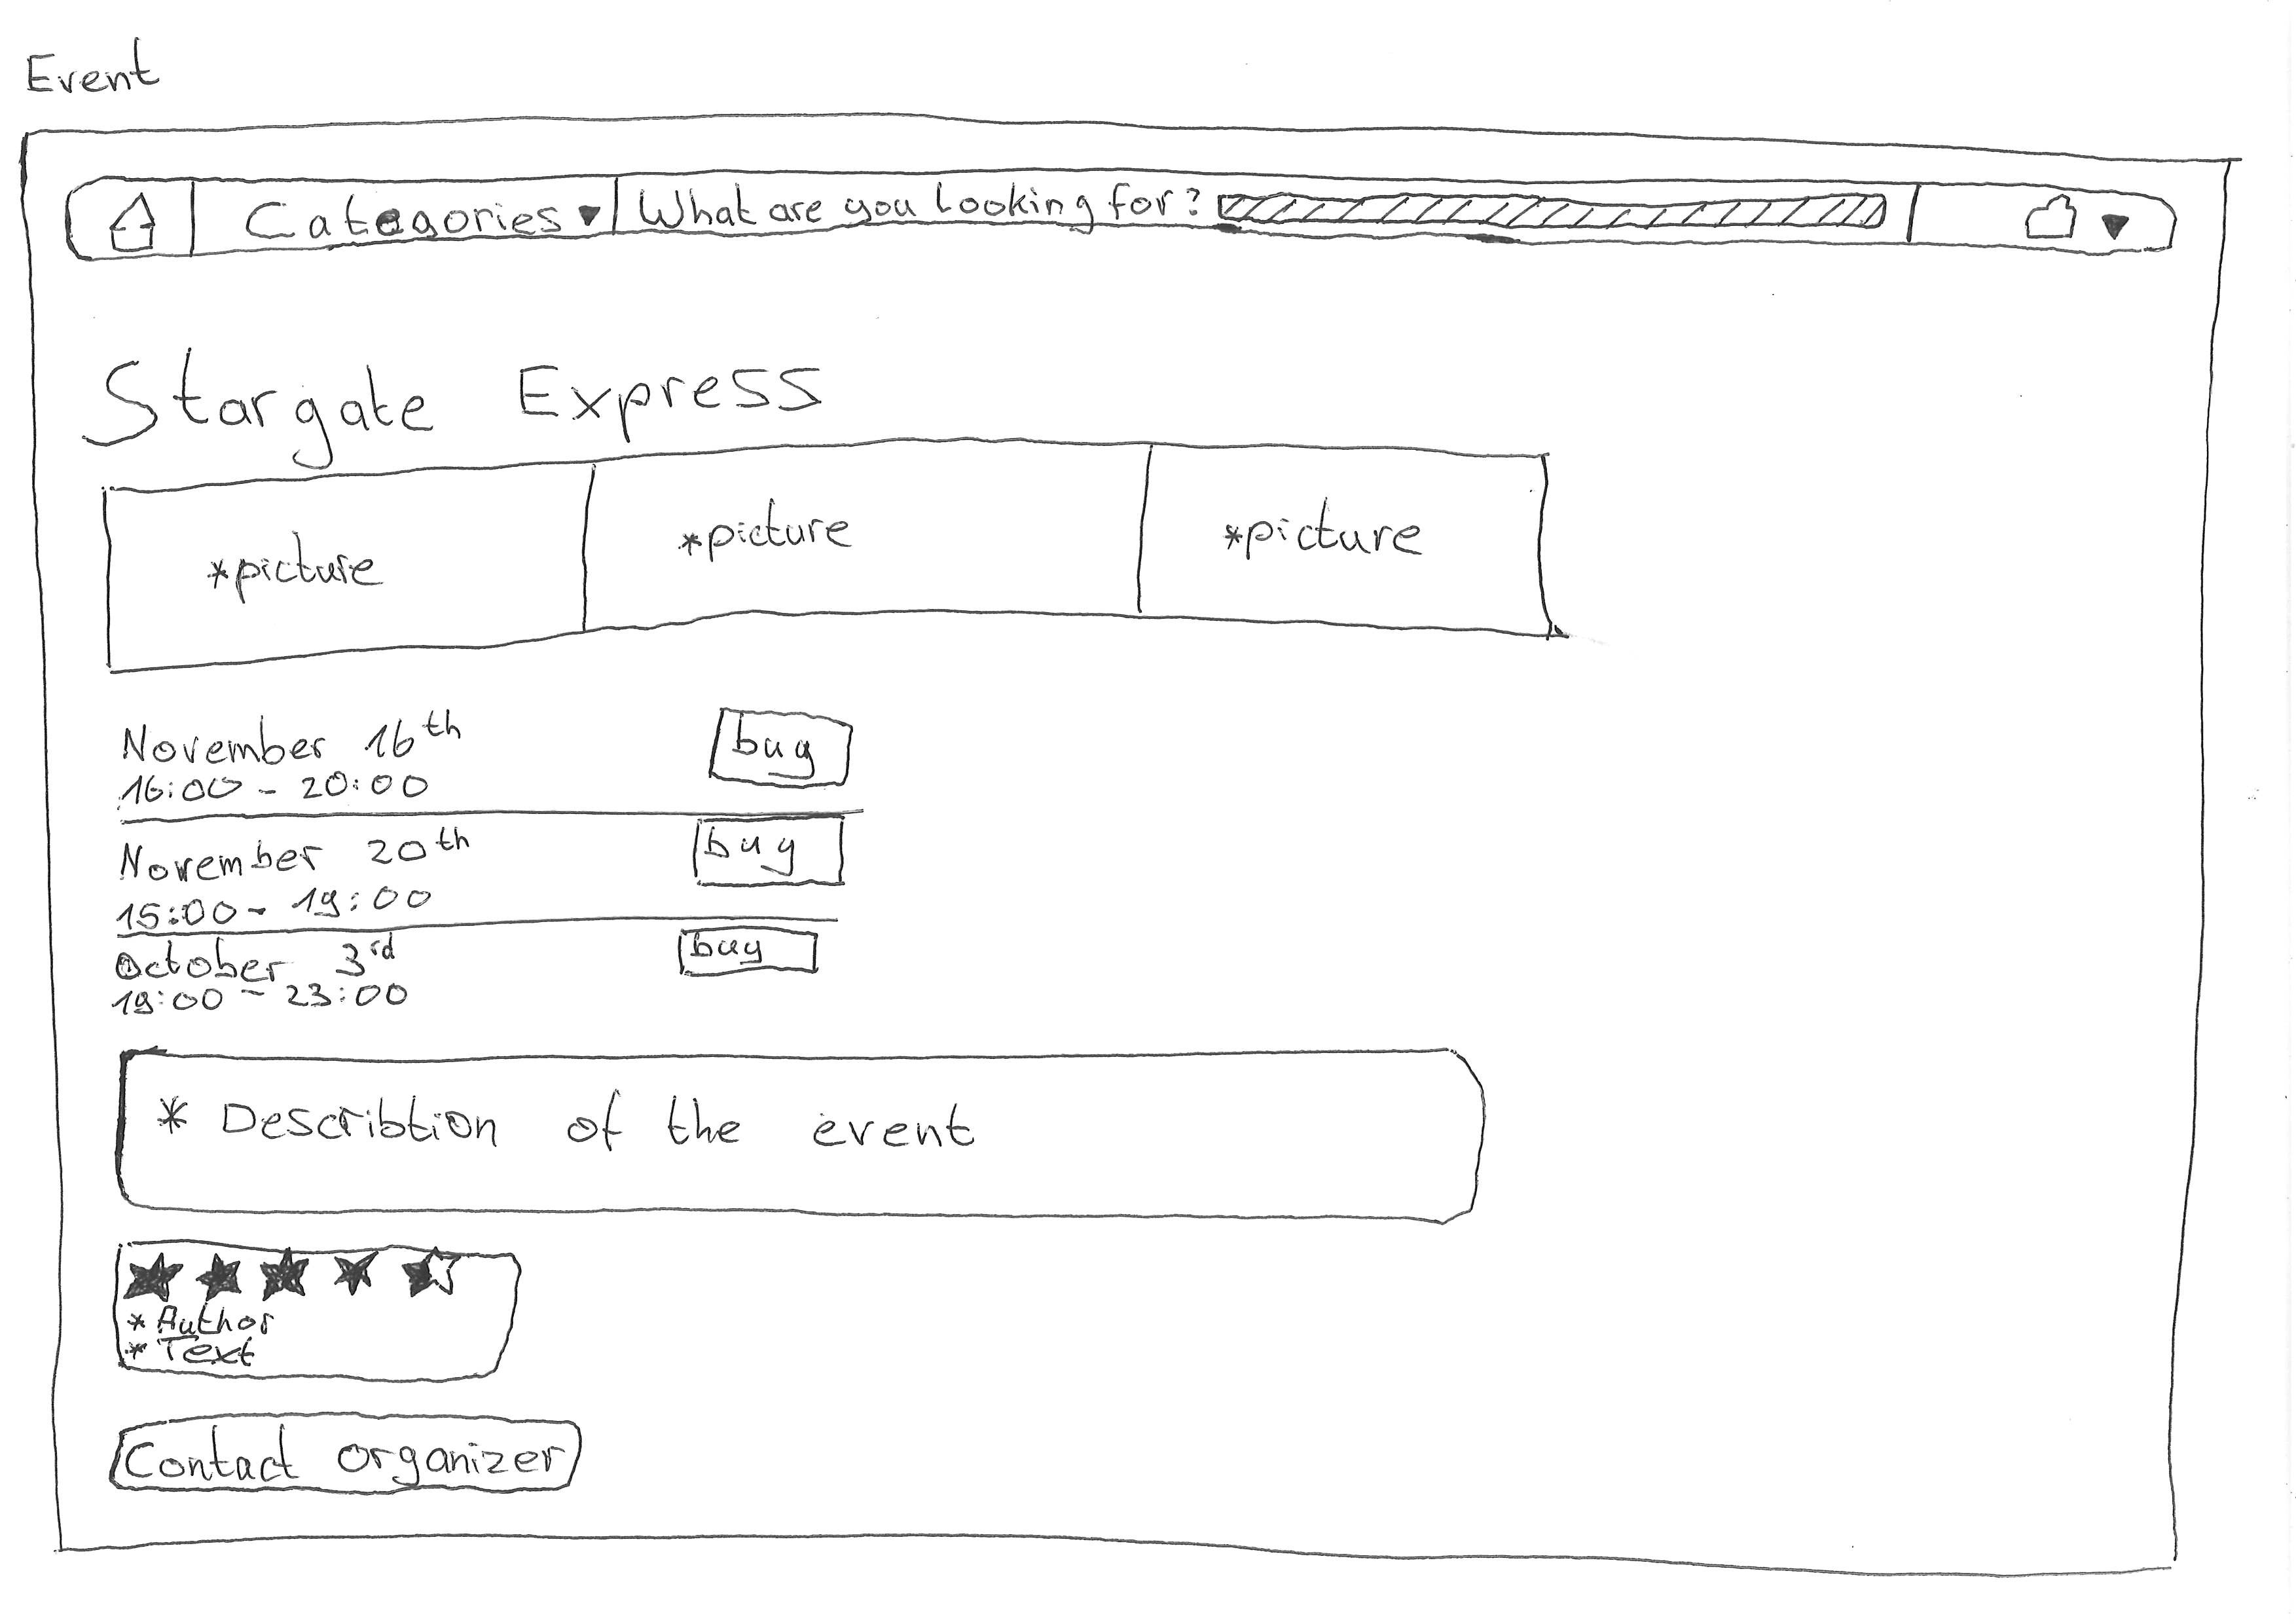 Event
Categories What are you looking for?
Stargate Express
*picture *picture *picture
November 16th buy
16:00 - 20:00
November 20th buy
15:00 - 19:00
October 3rd buy
19:00 - 23:00
* Describtion of the event
* Author
* Text
Contact organizer